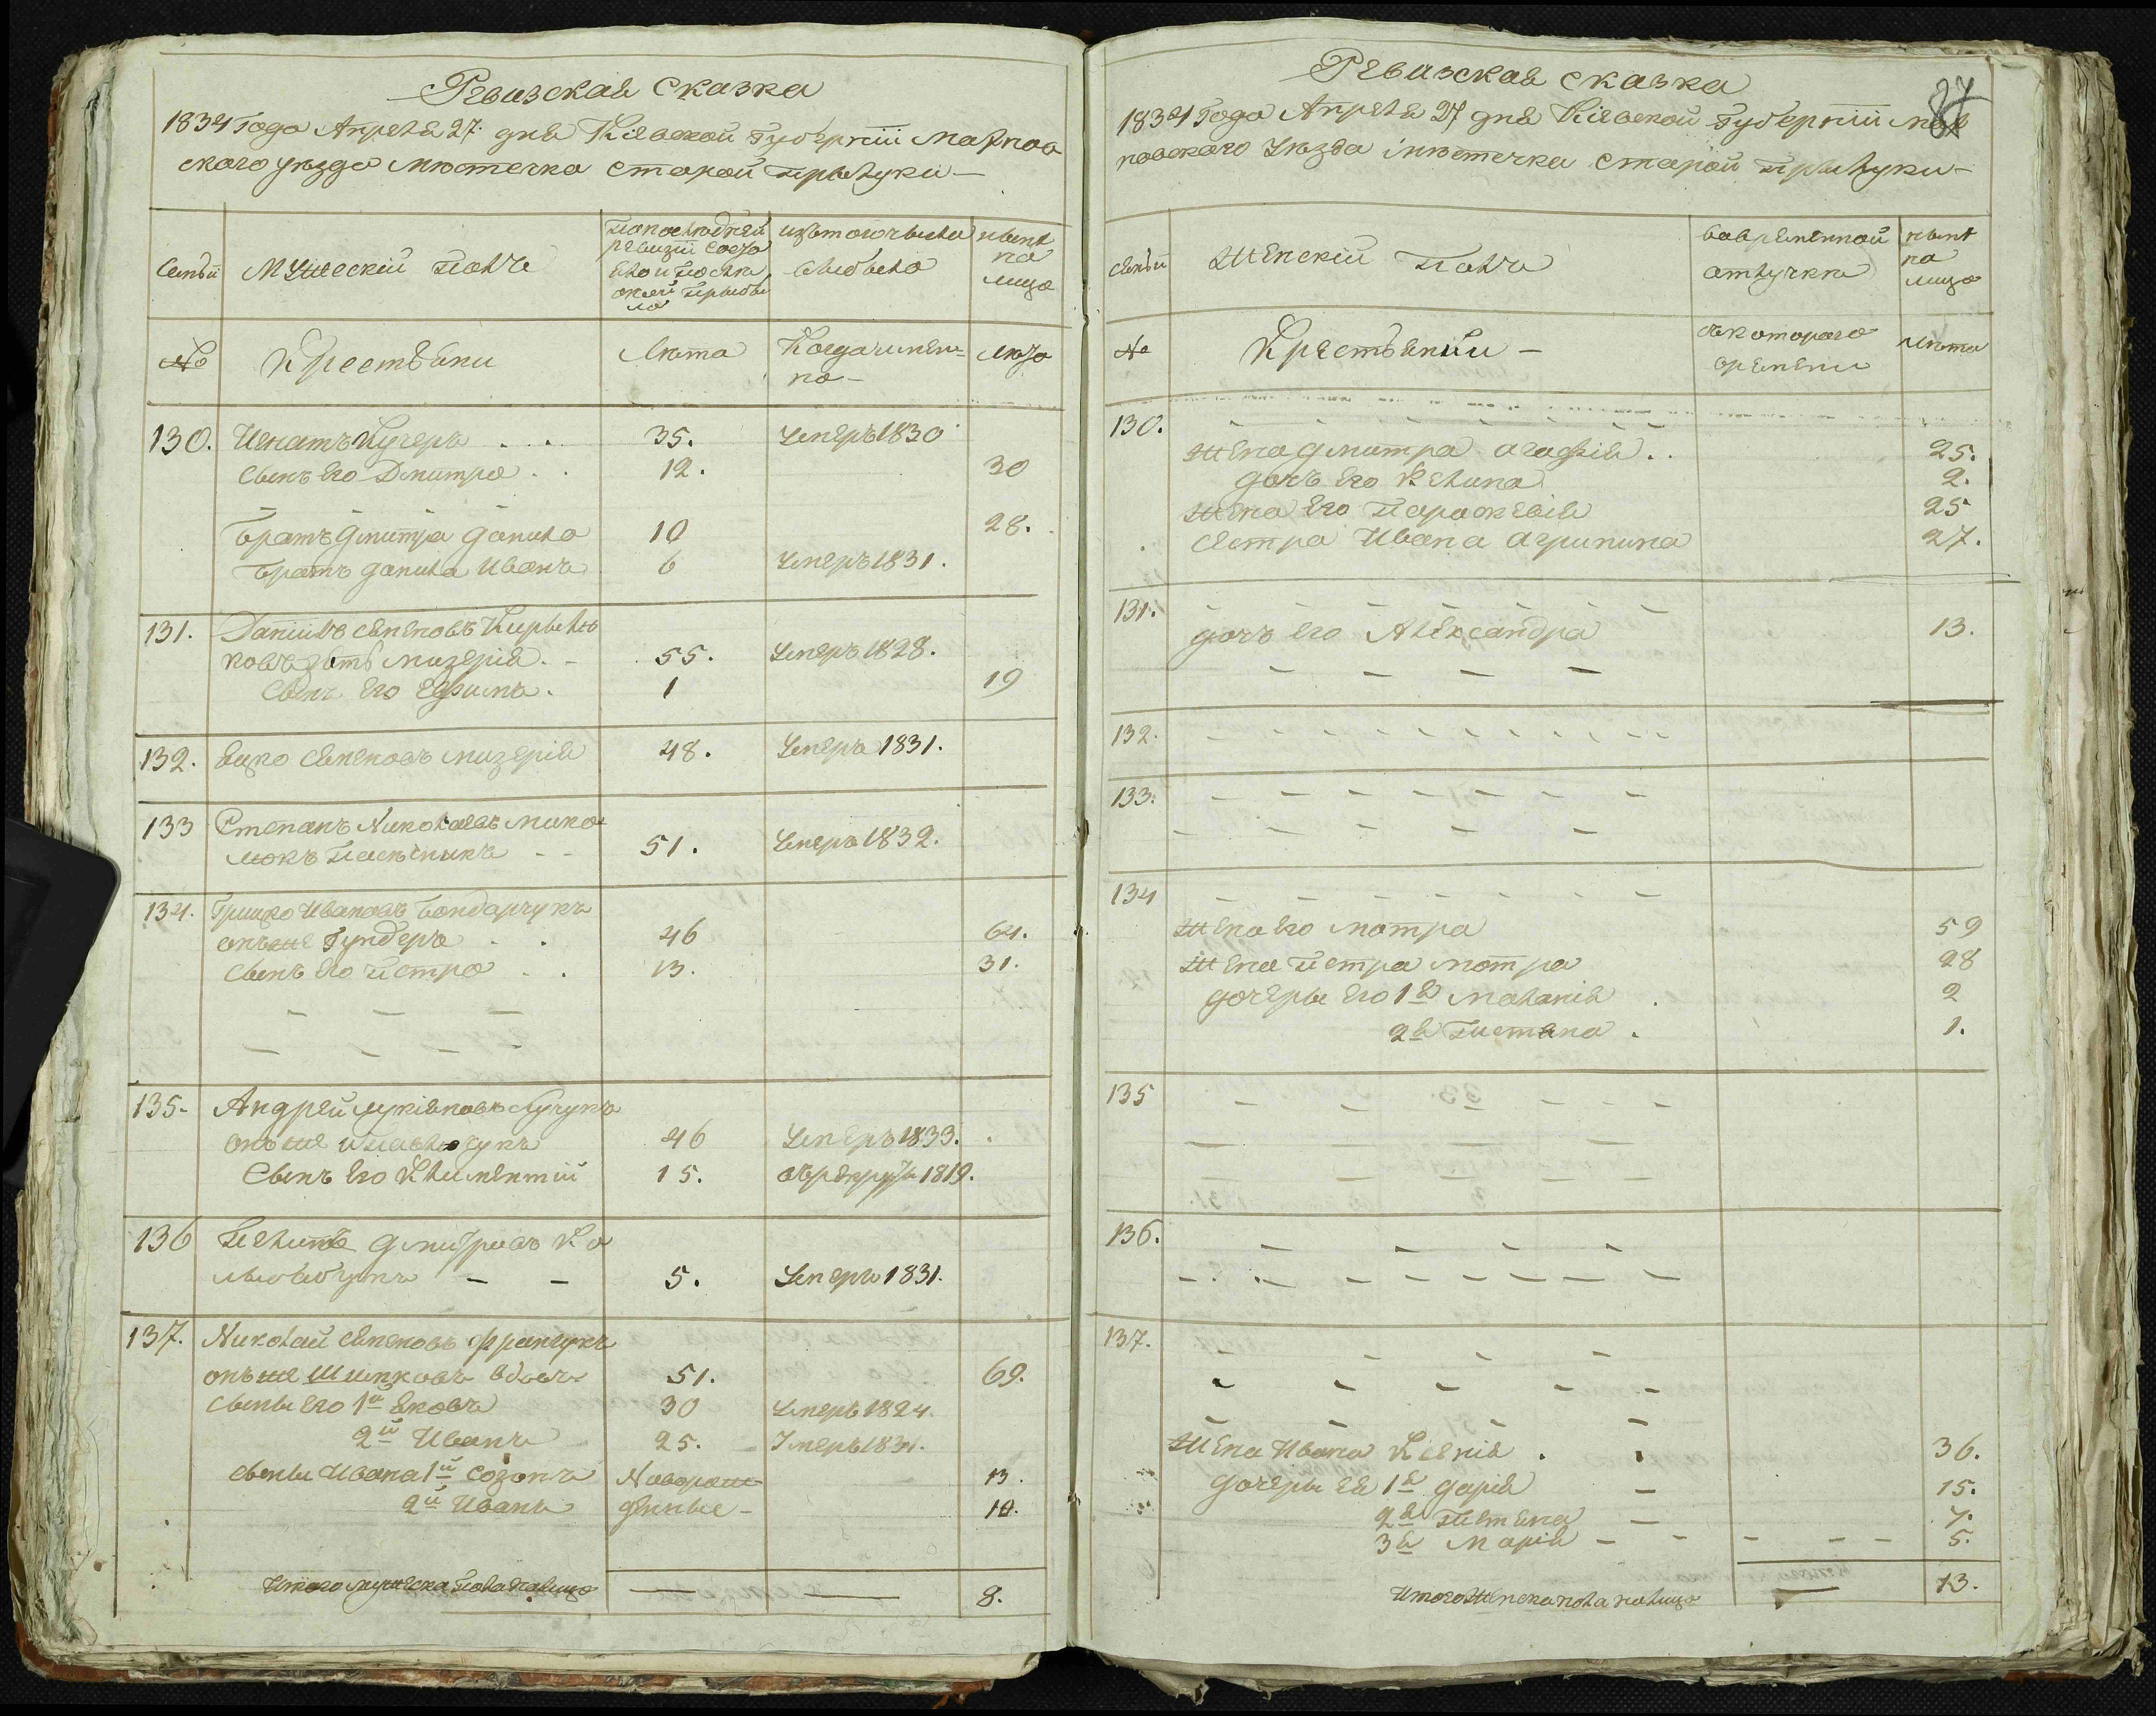 Ревизская сказка
1834 Года Апреля 27 дня Кіевской Губерніи Махнов
ского уезда местечка Старой Прылуки
Семьи
Мужескій полъ
по последней
ревизіи состо
яло и после
оной прыбы
ло
изъ того числа
выбыло
ныне
на
лицо
№
Крестьяни
лета
Когда имен=
но
лета
130. Игнатъ Кучеръ 35. Умеръ 1830
Сынъ его Дмитро 12. 30
Братъ Дмитра Данило 10 28.
Братъ Данила Иванъ 6 Умеръ 1831.
131. Даніилъ Семеновъ
зять Мизерія 55. Умеръ 1828.
Сынъ его Ефимъ 1 19
132. Яцко Семеновъ Мизерія 48. Умеръ 1831.
133 Степанъ Николаевъ Мико
люкъ Пасешникъ 51. Умеръ 1832.
134. Грицко Ивановъ Бондарчукъ
онъже Гундеръ 46 64.
Сынъ его Петро 13. 31.
135. Андрей Лукіяновъ
онъже 46 Умеръ 1833.
Сынъ его Климентій 15. въ рекруты 1819.
136 Дмитровъ Ко
5. Умеръ 1831.
137. Николай Семеновъ Франчукъ
онъже вдовъ 51. 69.
Сыны его 1й Яковъ 30 Умеръ 1824.
2й Иванъ 25. Умеръ 1831.
Сыны Ивана 1й Созонъ Новорож 13.
2й Иванъ денные 10.
Итого мужеска пола налицо 8.
Ревизская сказка
37
1834 Года Апреля 27 дня Кіевской Губерніи Мах
новского уезда местечка Старой Прылуки
Семьи
Женскій полъ
во временной
отлучки
ныне
на
лицо
№
Крестьянки
съ котораго
времени
лета
130.
Жена Дмитра Агафія 25.
дочь его Келина 2.
Жена его Параскевія 25
Сестра Ивана Агрипина 27.
131.
дочь его Александра 13.
132.
133.
134
Жена его Мотра 59
Жена Петра Мотра 28
дочеры его 1я Маланія 2
2я Тистяна 1.
135
136.
137.
Жена Ивана Ксенія 36.
дочеры ея 1я Дарія 15.
2я Тистяна 7.
3я Марія 5.
Итого Женска пола налицо 13.